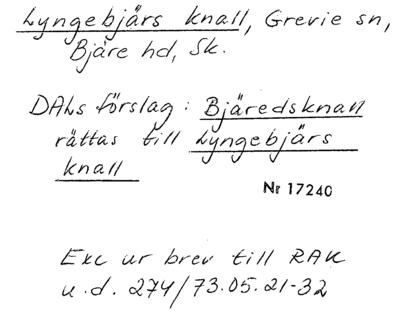 Lyngebjärs knall, Grevie sn,
Bjäre hd, Sk.
DALs förslag: Bjäredsknall
rättas till Lyngebjärs
knall
Nr 17240
Exc ur brev till RAK
u.d. 274/73.05.21-32